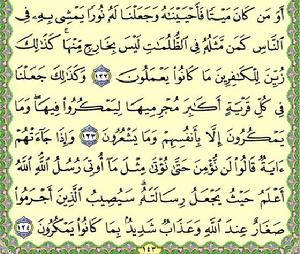 أَوَمَن كَانَ مَيْتًا فَأَحْيَيْنَٰهُ وَجَعَلْنَا لَهُۥ نُورًا يَمْشِى بِهِۦ فِى
ٱلنَّاسِ كَمَن مَّثَلُهُۥ فِى ٱلظُّلُمَٰتِ لَيْسَ بِخَارِجٍ مِّنْهَا ۚ كَذَٰلِكَ
زُيِّنَ لِلْكَٰفِرِينَ مَا كَانُوا۟ يَعْمَلُونَ ١٢٢ وَكَذَٰلِكَ جَعَلْنَا
فِى كُلِّ قَرْيَةٍ أَكَٰبِرَ مُجْرِمِيهَا لِيَمْكُرُوا۟ فِيهَا ۖ وَمَا
يَمْكُرُونَ إِلَّا بِأَنفُسِهِمْ وَمَا يَشْعُرُونَ ١٢٣ وَإِذَا جَآءَتْهُمْ
ءَايَةٌ قَالُوا۟ لَن نُّؤْمِنَ حَتَّىٰ نُؤْتَىٰ مِثْلَ مَآ أُوتِىَ رُسُلُ ٱللَّهِ ۘ ٱللَّهُ
أَعْلَمُ حَيْثُ يَجْعَلُ رِسَالَتَهُۥ ۗ سَيُصِيبُ ٱلَّذِينَ أَجْرَمُوا۟
صَغَارٌ عِندَ ٱللَّهِ وَعَذَابٌ شَدِيدٌۢ بِمَا كَانُوا۟ يَمْكُرُونَ ١٢٤
١٤٣